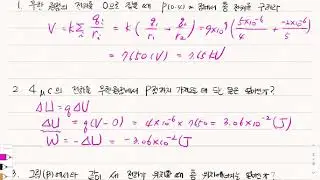 1. 무한 원점의 전위를 0으로 잡을 때 P(0,4) 점에서 총 전위를 구하라
V = k Σ qi/ri = k (q1/r1 + q2/r2) = 9×10⁹ (5×10⁻⁶/4 + -2×10⁻⁶/5)
= 7650 (V) = 7.65 kV
2. 4μC의 전하를 무한원점에서 P점까지 가져오는 데 드는 일은 얼마인가?
ΔU = qΔV
ΔU = q(V-0) = 4×10⁻⁶ × 7650 = 3.06×10⁻² (J)
W = -ΔU = -3.06×10⁻² (J
3. 그림(b)에서와 같이 세 전하가